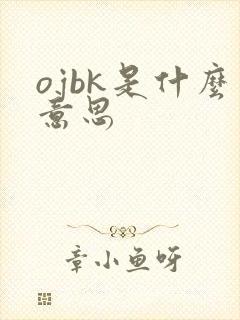 ojbk是什麼
意思
章小鱼呀